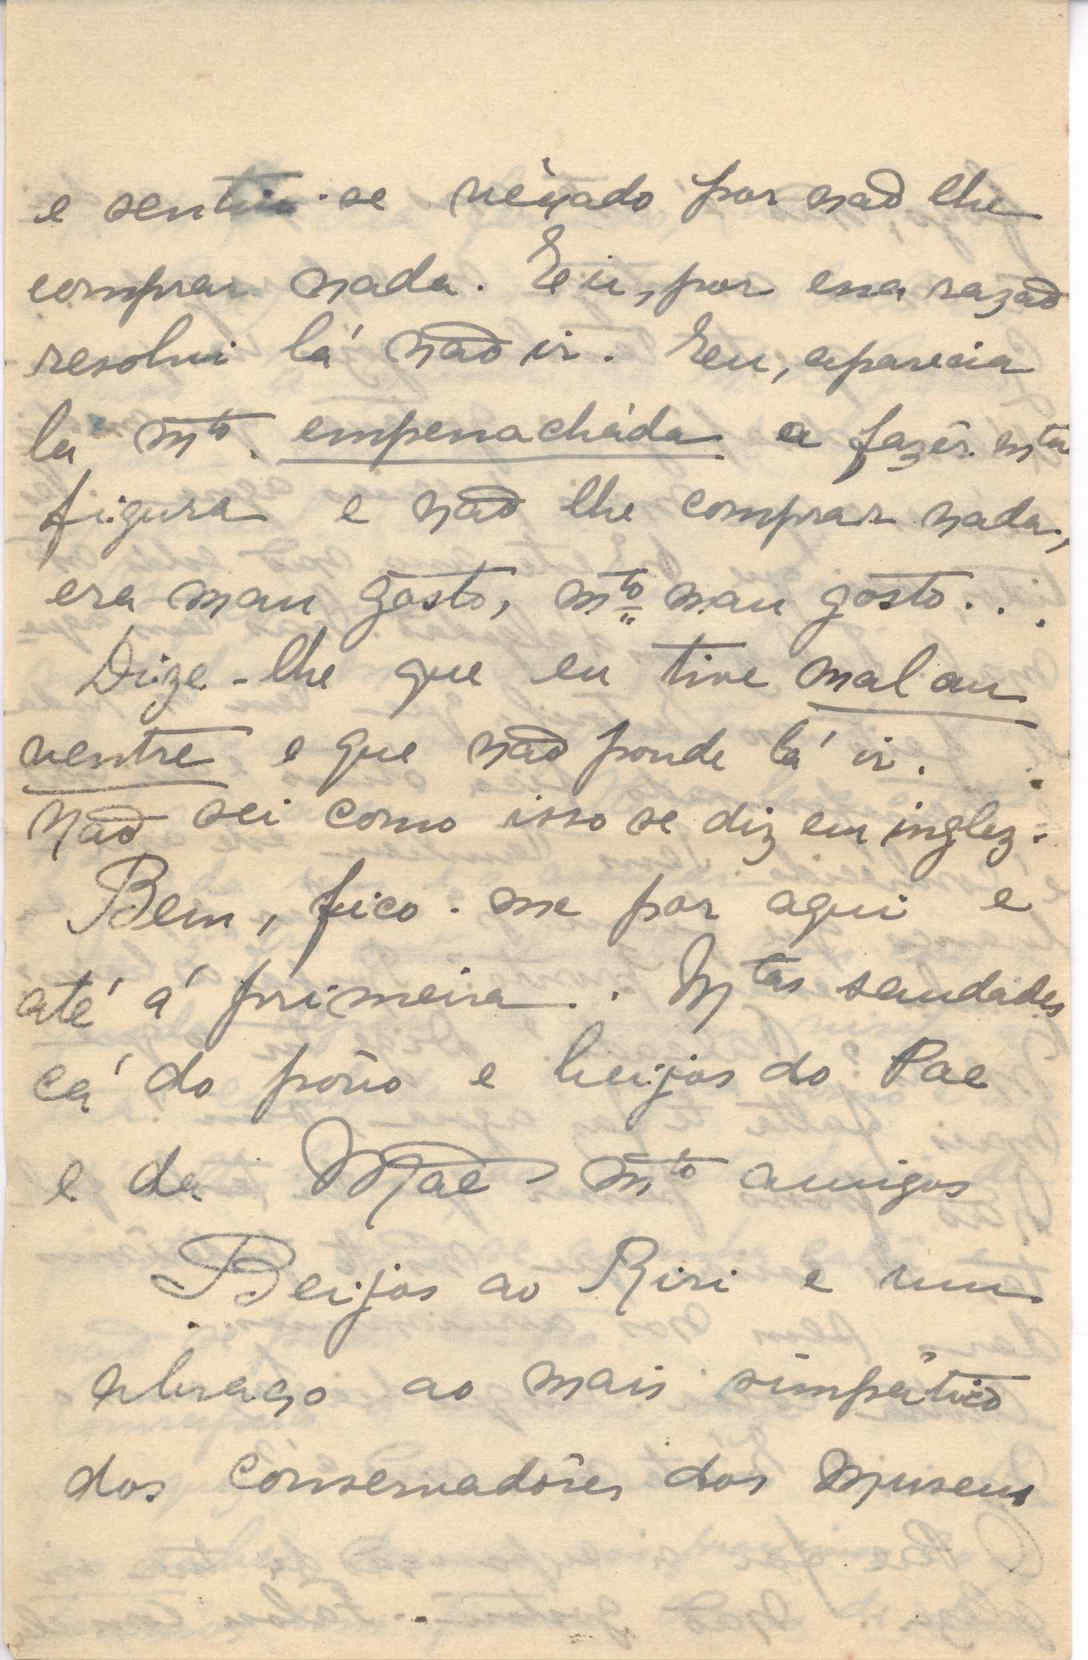 e sentiu-se vèxado por não lhe
comprar nada. Eu, por essa razão
resolvi lá não ir. Eu, aparecia
lá mto. empenacháda a fazêr mta
figura e não lhe comprar nada,
era mau gôsto, mto mau gôsto...
Dize-lhe que eu tive mal au
ventre e que não poude lá ir.
Não sei como isso se diz em inglez.
Bem, fico-me por aqui e
até á primeira... Mtas saudades
cá do pôvo e beijos do Pae
e da Mãe mto amigos
Beijos ao Riri e um
abraço ao mais simpático
dos conservadôres dos Museus